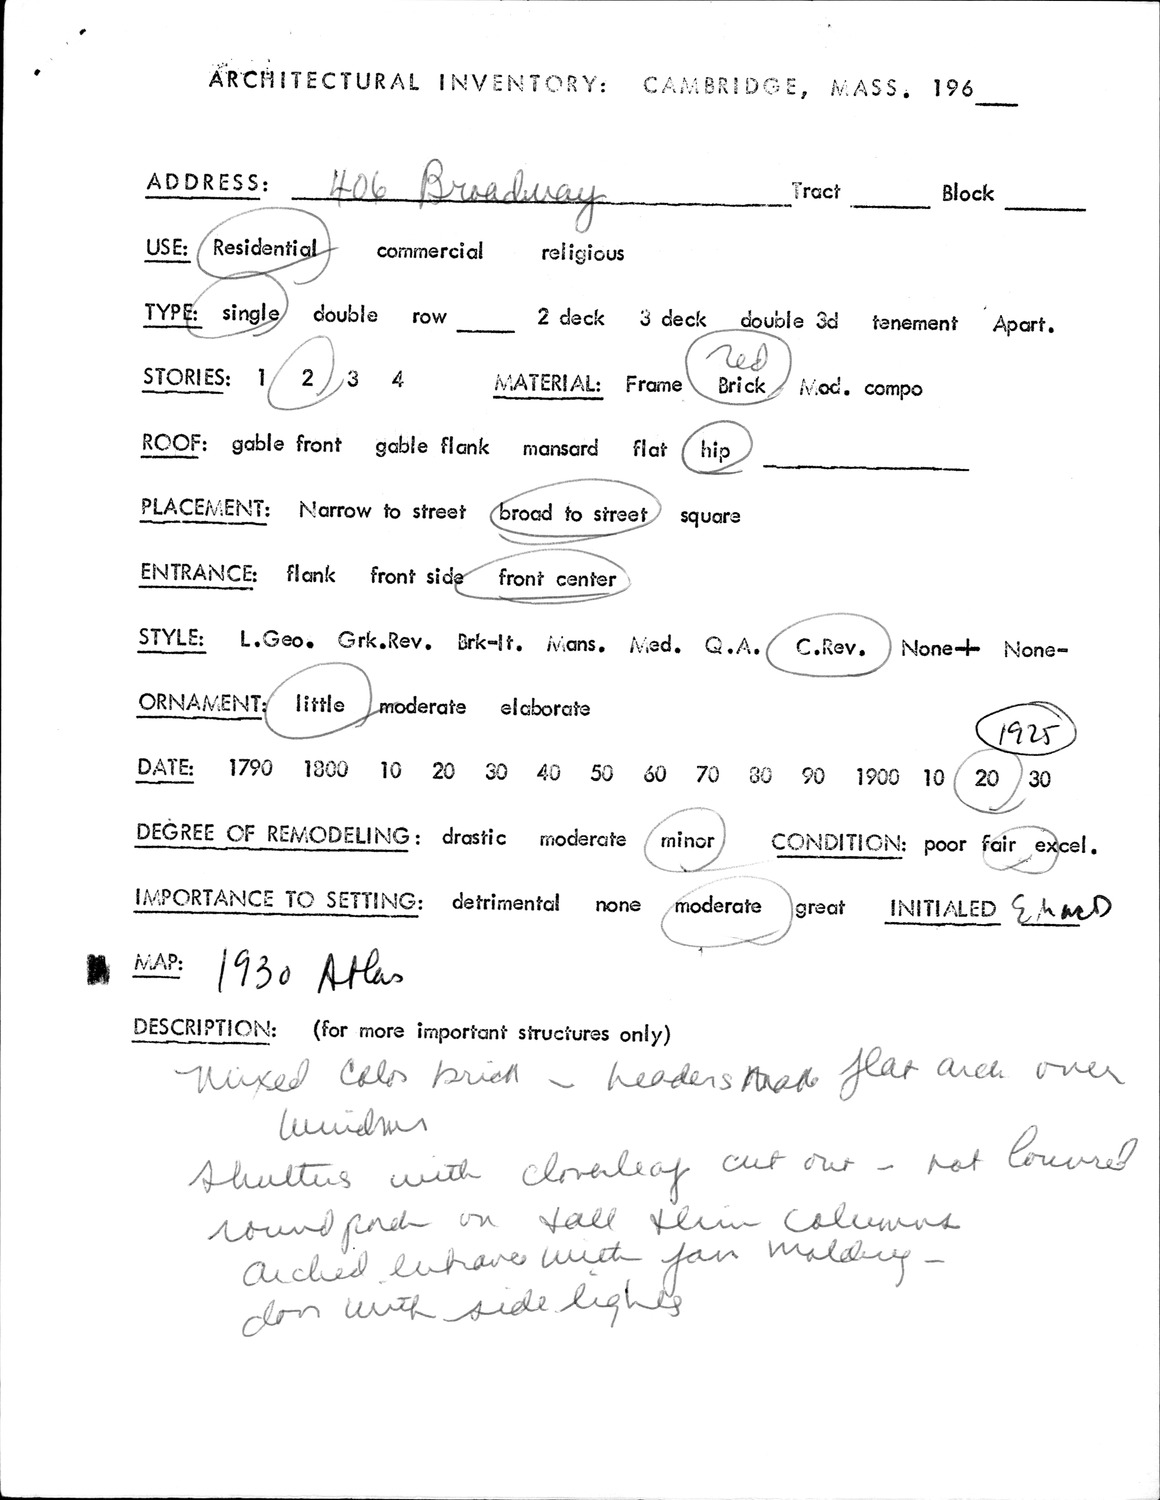 ARCHITECTURAL INVENTORY: CAMBRIDGE, MASS. 196___
ADDRESS: 406 Broadway Tract ______ Block ______
USE: Residential commercial religious
TYPE: single double row ____ 2 deck 3 deck double 3d tenement Apart.
red
STORIES: 1 2 3 4 MATERIAL: Frame Brick Mod. compo
ROOF: gable front gable flank mansard flat hip ______________
PLACEMENT: Narrow to street broad to street square
ENTRANCE: flank front side front center
STYLE: L.Geo. Grk.Rev. Brk-It. Mans. Med. Q.A. C.Rev. None+ None-
ORNAMENT: little moderate elaborate
1925
DATE: 1790 1800 10 20 30 40 50 60 70 80 90 1900 10 20 30
DEGREE OF REMODELING: drastic moderate minor CONDITION: poor fair excel.
IMPORTANCE TO SETTING: detrimental none moderate great INITIALED
MAP: 1930 Atlas
DESCRIPTION: (for more important structures only)
Mixed color brick - headers made flat arch over
windows
Shutters with cloverleaf cut out - not louvred
round porch on tall thin columns
Arched entrance with fan molding -
door with side lights